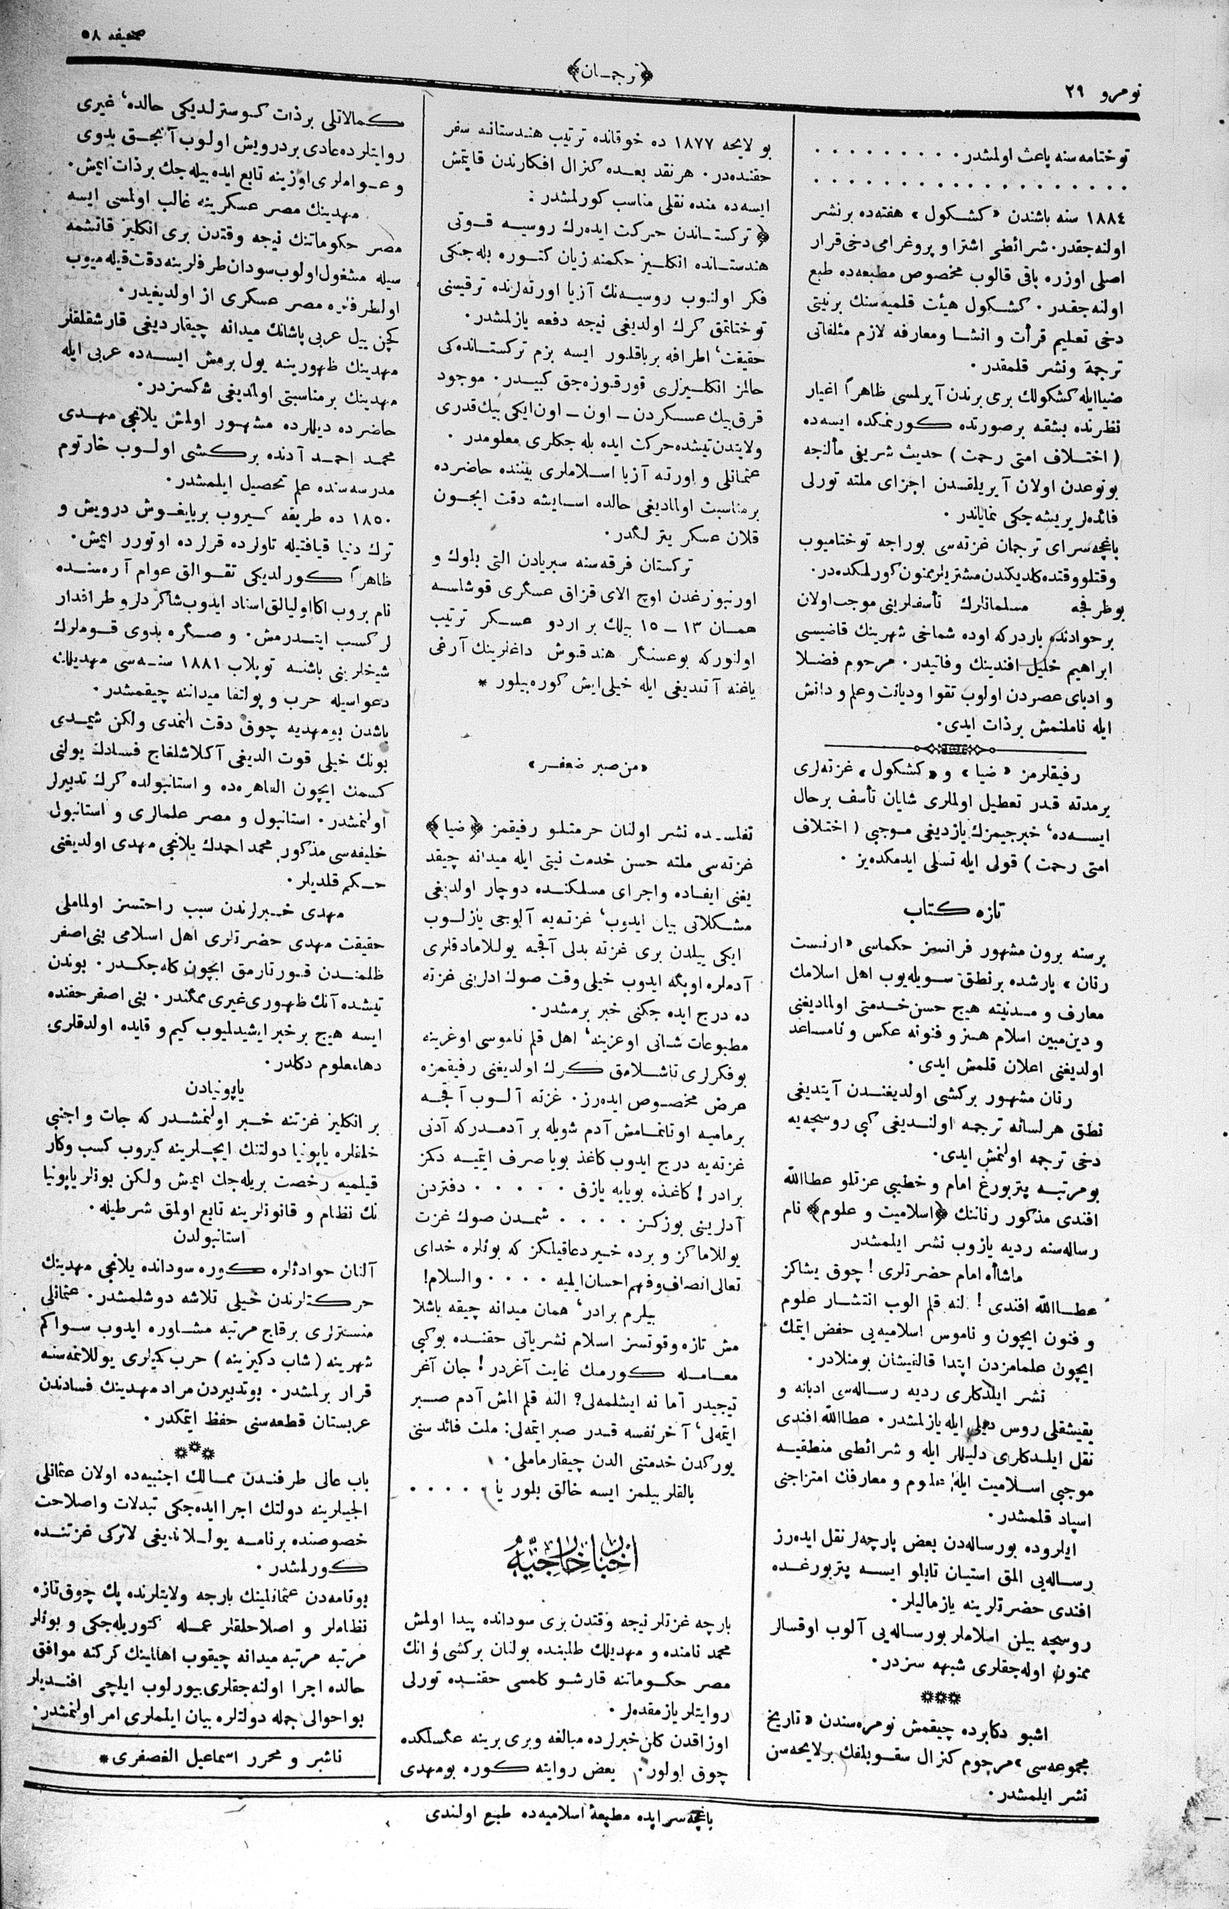 نومرو ٢٩
﴿ ترجمان ﴾
صحیفه ٥٨
توختامه سنه باعث اولمشدر. . . . . . . . . .
. . . . . . . . . . . . . . . . . .
١٨٨٤ سنه باشندن «كشكول» هفته ده بر نشر
اولنه جقدر. شرائطی اشترا و پروغرامی دخی قرار
اصلی اوزره باقی قالوب مخصوص مطبعه ده طبع
اولنه جقدر. كشكول هیئت قلمیه سنك بر نیتی
دخی تعلیم قرأت و انشا و معارفه لازم مئلفاتی
ترجمه و نشر قلمقدر.
ضیا ایله كشكولك بری برندن آیرلمسی ظاهراً اغیار
نظرنده بشقه بر صورتده كورنمكده ایسه ده
( اختلاف امتی رحمت ) حدیث شریفی مألنجه
بو نوعدن اولان آیریلقدن اجزای ملته تورلی
فائده لر یریشه جكی نمایاندر.
باغچه سرای ترجمان غزته سی بوراجه توختامیوب
وقتلو وقتده كلدیكندن مشتریلر ممنون كورلمكده در.
بو طرفجه مسلمانلرك تأسفلرینی موجب اولان
بر حوادثده باردركه اوده شماخی شهرینك قاضیسی
ابراهیم خلیل افندینك وفاتیدر. مرحوم فضلا
و ادبای عصردن اولوب تقوا و دیانت و علم و دانش
ایله ناملنمش بر ذات ایدی.
رفیقلرمز «ضیا» و «كشكول» غزته لری
بر مدته قدر تعطیل اولملری شایان تأسف بر حال
ایسه ده، خبرجیمزك یازدیغی موجبی ( اختلاف
امتی رحمت ) قولی ایله تسلی ایدمكده یز.
تازه كتاب
بر سنه برون مشهور فرانسز حكماسی «ارنست
رنان» پارشده بر نطق سویله یوب اهل اسلامك
معارف و مدنیته هیچ حسن خدمتی اولمادیغنی
و دین مبین اسلام هنر و فنونه عكس و نامساعد
اولدیغنی اعلان قلمش ایدی.
رنان مشهور بركشی اولدیغندن آیتدیغی
نطق هر لسانه ترجمه اولندیغی كبی روسچه یه
دخی ترجمه اولنمش ایدی.
بو مرتبه پتربورغ امام و خطیبی عزتلو عطاالله
افندی مذكور رنانك ﴿اسلامیت و علوم﴾ نام
رساله سنه ردیه یازوب نشر ایلمشدر
ماشاأه امام حضرتلری! چوق یشاكز
عطاالله افندی! النه قلم الوب انتشار علوم
و فنون ایچون و ناموس اسلامیه یی حفض ایتمك
ایچون علمامزدن ابتدا قالقیشان بومنلادر.
نشر ایلدكلری ردیه رساله سی ادبانه و
یقیشقلی روس دیلی ایله یازلمشدر. عطاالله افندی
نقل ایلدكلری دلیللر ایله و شرائطی منطقیه
موجبی اسلامیت ایله علوم و معارفك امتزاجنی
اسپاد قلمشدر.
ایلروده بو رساله دن بعض پارچه لر نقل ایده رز
رساله یی المق استیان تابلو ایسه پتربورغده
افندی حضرتلرینه یازمالیلر.
روسچه بیلن اسلاملر بو رساله یی آلوب اوقسار
ممنون اوله جقلری شبهه سزدر.
***
اشبو دكابرده چیقمش نومره سندن «تاریخ
مجموعه سی» مرحوم كنزال سقوبلفك بر لایحه سن
نشر ایلمشدر.
بو لایحه ١٨٧٧ ده خوقانده ترتیب هندستانه سفر
حقنده در. هر نقد بعده كنرال افكارندن قایتمش
ایسه ده منده نقلی مناسب كورلمشدر:
﴿ تركستاندن حركت ایده رك روسیه قوتی
هندستانده انكلیز حكمنه زیان كتوره بله جكی
فكر اولنوب روسیه نك آزیا اورته لرنده ترقیسنی
توختاتمق كرك اولدیغی نیجه دفعه یازلمشدر.
حقیقت، اطرافه بر باقلور ایسه بزم تركستانده كی
حالمز انكلیزلری قورقوزه جق كبیدر. موجود
قرق بیك عسكردن – اون – اون ایكی بیك قدری
ولایتدن تیشده حركت ایده بله جكلری معلومدر.
عثمانلی و اورته آزیا اسلاملری بیننده حاضرده
بر مناسبت اولمادیغی حالده اسایشه دقت ایچون
قلان عسكر یتر لكدر.
تركستان فرقه سنه سبریادن التی بلوك و
اورنبورغدن اوچ الای قزاق عسكری قوشلسه
همان ١٣ – ١٥ بیلك بر اردو عسكر ترتیب
اولنوركه بو عسكر هند قوش داغلرینك آرقی
یاغنه آتدیغی ایله خیلی ایش كوره بیلور *
«من صبر ضعفر»
تفلسده نشر اولنان حرمتلو رفیقمز ﴿ ضیا ﴾
غزته سی ملته حسن خدمت نیتی ایله میدانه چیقد
یغنی ایفاده و اجرای مسلكنده دوچار اولدیغی
مشكلاتی بیان ایدوب، غزته یه آلوجی یازلوب
ایكی ییلدن بری غزته بدلی آقچه یوللامادقلری
آدملره اوبكه ایدوب خیلی وقت صوك ادلرینی غزته
ده درج ایده جكنی خبر برمشدر.
مطبوعات شانی اوغرینه، اهل قلم ناموسی اوغرینه
بو فكرلری تاشلامق كرك اولدیغنی رفیقمزه
عرض مخصوص ایده رز. غزته آلوب آقچه
برمامیه اوتانمامش آدم شویله بر آدمدركه آدنی
غزته یه درج ایدوب كاغذ بویا صرف ایتمیه دكمز
برادر! كاغذه بویایه یازق . . . . . دفتردن
آدلرینی بوزكز . . . . شمدن صوك غزت
یوللاماكز و برده خیر دعا قیلكز كه بونلره خدای
تعالی انصاف و فهم احسان ایلیه . . . . والسلام!
بیلرم برادر، همان میدانه چیقه باشلا
مش تازه و قوتسز اسلام نشریاتی حقنده بو كبی
معامله كورمك غایت آغردر! جان آغر
تیجیدر آما نه ایشلمه لی؟ النه قلم المش آدم صبر
ایتمه لی، آخر نفسه قدر صبر ایتمه لی: ملت فائد سنی
یوركدن خدمتنی الدن چیقارماملی.
بالقلر بیلمز ایسه خالق بلور یا . . . . .
اخبار خارجیّه
بارچه غزتلر نیجه وقتدن بری سودانده پیدا اولمش
محمد نامنده و مهدیلك طلبنده بولنان بركشی و انك
مصر حكوماتنه قارشو كلمسی حقنده تورلی
روایتلر یازمقده لر.
اوزاقدن كلن خبرلرده مبالغه و بری برینه عكسلمكده
چوق اولور. بعض روایته كوره بو مهدی
كمالاتلی بر ذات كوسترلدیكی حالده، غیری
روایتلرده عادی بر درویش اولوب آنجق بدوی
و عوام لری اوزینه تابع ایده بیله جك بر ذات ایمش.
مهدینك مصر عسكرینه غالب اولمسی ایسه
مصر حكوماتنك نیجه وقتدن بری انكلیز قاتشمه
سیله مشغول اولوب سودان طرفلرینه دقت قیله میوب
اولطرفلرده مصر عسكری از اولدیغیدر.
كچن ییل عربی پاشانك میدانه چیقاردیغی قارشقلقلر
مهدینك ظهورینه یول برمش ایسه ده عربی ایله
مهدینك بر مناسبتی اولمدیغی شكسزدر.
حاضرده دیللرده مشهور اولمش یلانجی مهدی
محمد احمد آدنده بركشی اولوب خارتوم
مدرسه سنده علم تحصیل ایلمشدر.
١٨٥٠ ده طریقه كیروب بر بایغوش درویش و
ترك دنیا قیافتیله تاولرده قرلرده اوتورر ایمش.
ظاهراً كورلدیكی تقوالق عوام آره سنده
نام بروب اكا اولیالق اسناد ایدوب شاكردلر و طرافدار
لر كسب ایتدرمش. و صكره بدوی قوملرك
شیخلرینی باشنه توپلاب ١٨٨١ سنه سی مهدیلك
دعواسیله حرب و پولتقا میداننه چیقمشدر.
باشدن بو مهدیه چوق دقت النمدی ولكن شیمدی
بونك خیلی قوت الدیغی آكلاشلغاج فسادك یولنی
كسمك ایچون القاهره ده و استانبولده كرك تدبیرلر
اولنمشدر. استانبول و مصر علمالری و استانبول
خلیفه سی مذكور محمد احمدك یلانجی مهدی اولدیغنی
حكم قلدیلر.
مهدی خبرلرندن سبب راحتسز اولماملی
حقیقت مهدی حضرتلری اهل اسلامی بنی اصفر
ظلمندن قورتارمق ایچون كله جكدر. بوندن
تیشده آنك ظهوری غیری ممكندر. بنی اصفر حقنده
ایسه هیچ بر خبر ایشیدلمیوب كیم و قایده اولدقلری
دها معلوم دكلدر.
یاپونیادن
بر انكلیز غزتنه خبر اولنمشدر كه جات و اجنبی
خلقلره یاپونیا دولتنك ایچلرینه كیروب كسب وكار
قیلمیه رخصت بریله جك ایمش ولكن بونلر یاپونیا
نك نظام و قانونلرینه تابع اولمق شرطیله.
استانبولدن
آلنان حوادثلره كوره سودانده یلانجی مهدینك
حركتلرندن خیلی تلاشه دوشلمشدر. عثمانلی
منسترلری بر قاچ مرتبه مشاوره ایدوب سواكم
شهرینه ( شاب دكیزینه ) حرب كمیلری یوللانمه سنه
قرار برلمشدر. بو تدبیردن مراد مهدینك فسادندن
عربستان قطعه سنی حفظ ایتمكدر.
***
باب عالی طرفندن ممالك اجنبیه ده اولان عثمانلی
الجیلرینه دولتك اجرا ایده جكی تبدلات و اصلاحت
خصوصنده بر نامه یوللاندیغی لاتركی غزتنده
كورلمشدر.
بو نامه دن عثمانلینك بارچه ولایتلرنده پك چوق تازه
نظاملر و اصلاحلقلر عمله كتوریله جكی و بونلر
مرتبه مرتبه میدانه چیقوب اهالینك كركنه موافق
حالده اجرا اولنه جقلری بیورلوب ایلچی افندیلر
بو احوالی جمله دولتلره بیان ایلملری امر اولنمشدر.
ناشر و محرر اسماعیل الغصفری *
باغچه سرایده مطبعهٔ اسلامیه ده طبع اولندی